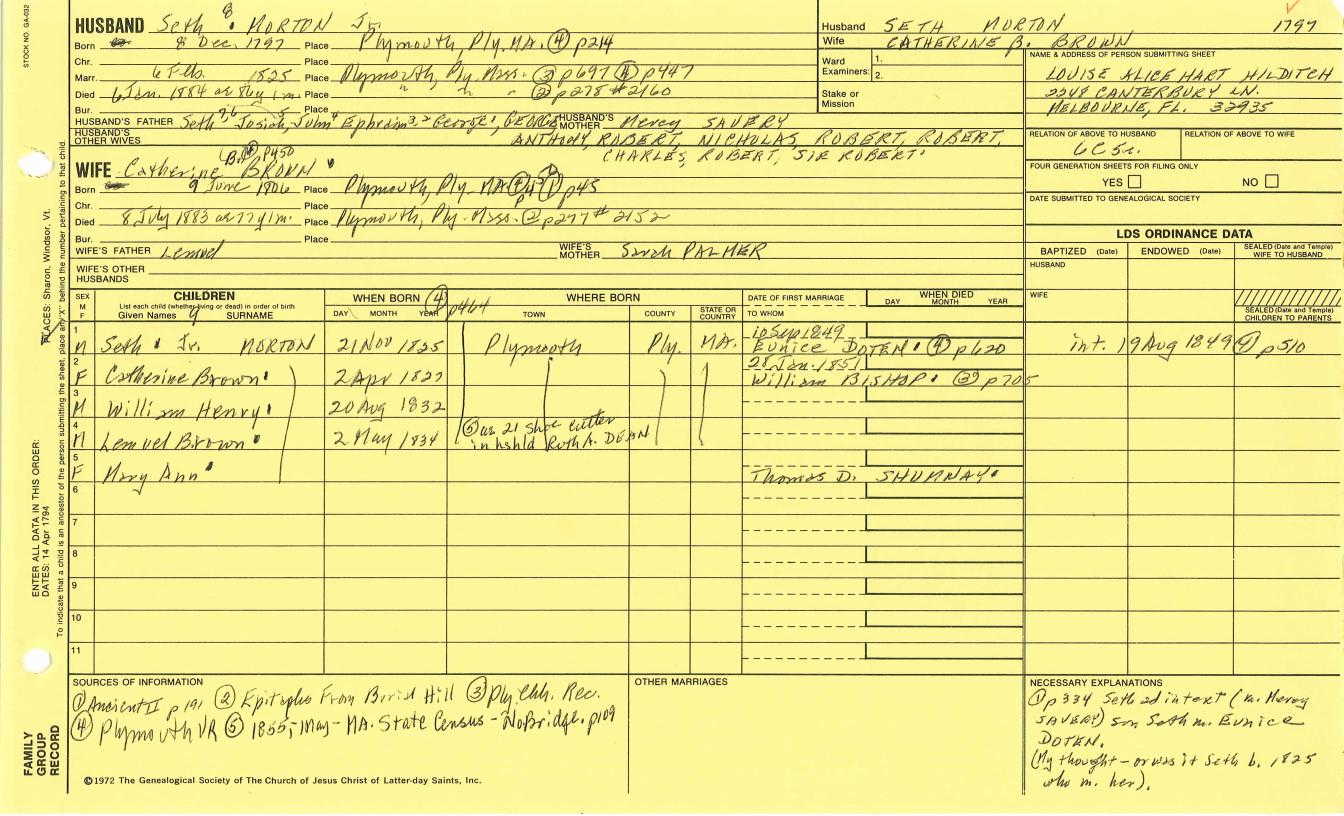 STOCK NO. GA-032
HUSBAND Seth 8 MORTON Jr.
Born 8 Dec. 1797 Place Plymouth, Ply. MA. ④ p214
Chr. Place
Marr. 6 Feb. 1825 Place Plymouth, Ply. Mass. ③ p697 ④ p447
Died 6 Jan. 1884 ae 86y 1m. Place " " " ② p278 #2160
Bur. Place
HUSBAND'S FATHER Seth, Josiah, John, Ephraim, George, GEORGE HUSBAND'S MOTHER Mercy SAVERY
HUSBAND'S OTHER WIVES ANTHONY, ROBERT, NICHOLAS, ROBERT, ROBERT,
CHARLES, ROBERT, SIR ROBERT
B. ④ p450
WIFE Catherine BROWN
Born 9 June 1806 Place Plymouth, Ply. MA ① p45
Chr. Place
Died 8 July 1883 ae 77y 1m. Place Plymouth, Ply. Mass. ② p277 # 2152
Bur. Place
WIFE'S FATHER Lemuel WIFE'S MOTHER Sarah PALMER
WIFE'S OTHER HUSBANDS
Husband SETH MORTON 1797
Wife CATHERINE B. BROWN
Ward Examiners: 1.
2.
Stake or Mission
NAME & ADDRESS OF PERSON SUBMITTING SHEET
LOUISE ALICE HART HILDITCH
2248 CANTERBURY LN.
MELBOURNE, FL. 32935
RELATION OF ABOVE TO HUSBAND RELATION OF ABOVE TO WIFE
FOUR GENERATION SHEETS FOR FILING ONLY
YES NO
DATE SUBMITTED TO GENEALOGICAL SOCIETY
LDS ORDINANCE DATA
BAPTIZED (Date) ENDOWED (Date) SEALED (Date and Temple) WIFE TO HUSBAND
HUSBAND
WIFE
SEALED (Date and Temple) CHILDREN TO PARENTS
SEX M F CHILDREN List each child (whether living or dead) in order of birth Given Names 9 SURNAME WHEN BORN DAY MONTH YEAR ④ p464 WHERE BORN TOWN COUNTY STATE OR COUNTRY DATE OF FIRST MARRIAGE TO WHOM WHEN DIED DAY MONTH YEAR
10 Sep 1849
1 M Seth Jr. MORTON 21 Nov 1825 Plymouth Ply. MA. Eunice DOTEN ④ p620 int. 19 Aug 1849 ④ p510
28 Jan. 1851
2 F Catherine Brown 2 Apr 1827 William BISHOP p705
3 M William Henry 20 Aug 1832
4 M Lemuel Brown 2 May 1834 ⑤ ae 21 shoe cutter
in hshld Ruth A. DEAN
5 F Mary Ann Thomas D. SHUMWAY
6
7
8
9
10
11
SOURCES OF INFORMATION
① Ancient II p191 ② Epitaphs From Burial Hill ③ Ply. Chh. Rec.
④ Plymouth VR ⑤ 1855, May - MA. State Census - No Bridge. p109
OTHER MARRIAGES
NECESSARY EXPLANATIONS
① p 334 Seth ad intext (m. Mercy
SAVERY) son Seth m. Eunice
DOTEN.
(My thought - or was it Seth b. 1825
who m. her).
©1972 The Genealogical Society of The Church of Jesus Christ of Latter-day Saints, Inc.
FAMILY GROUP RECORD
ENTER ALL DATA IN THIS ORDER:
DATES: 14 Apr 1794
PLACES: Sharon, Windsor, Vt.
To indicate that a child is an ancestor of the person submitting the sheet, place an "X" behind the number pertaining to that child.